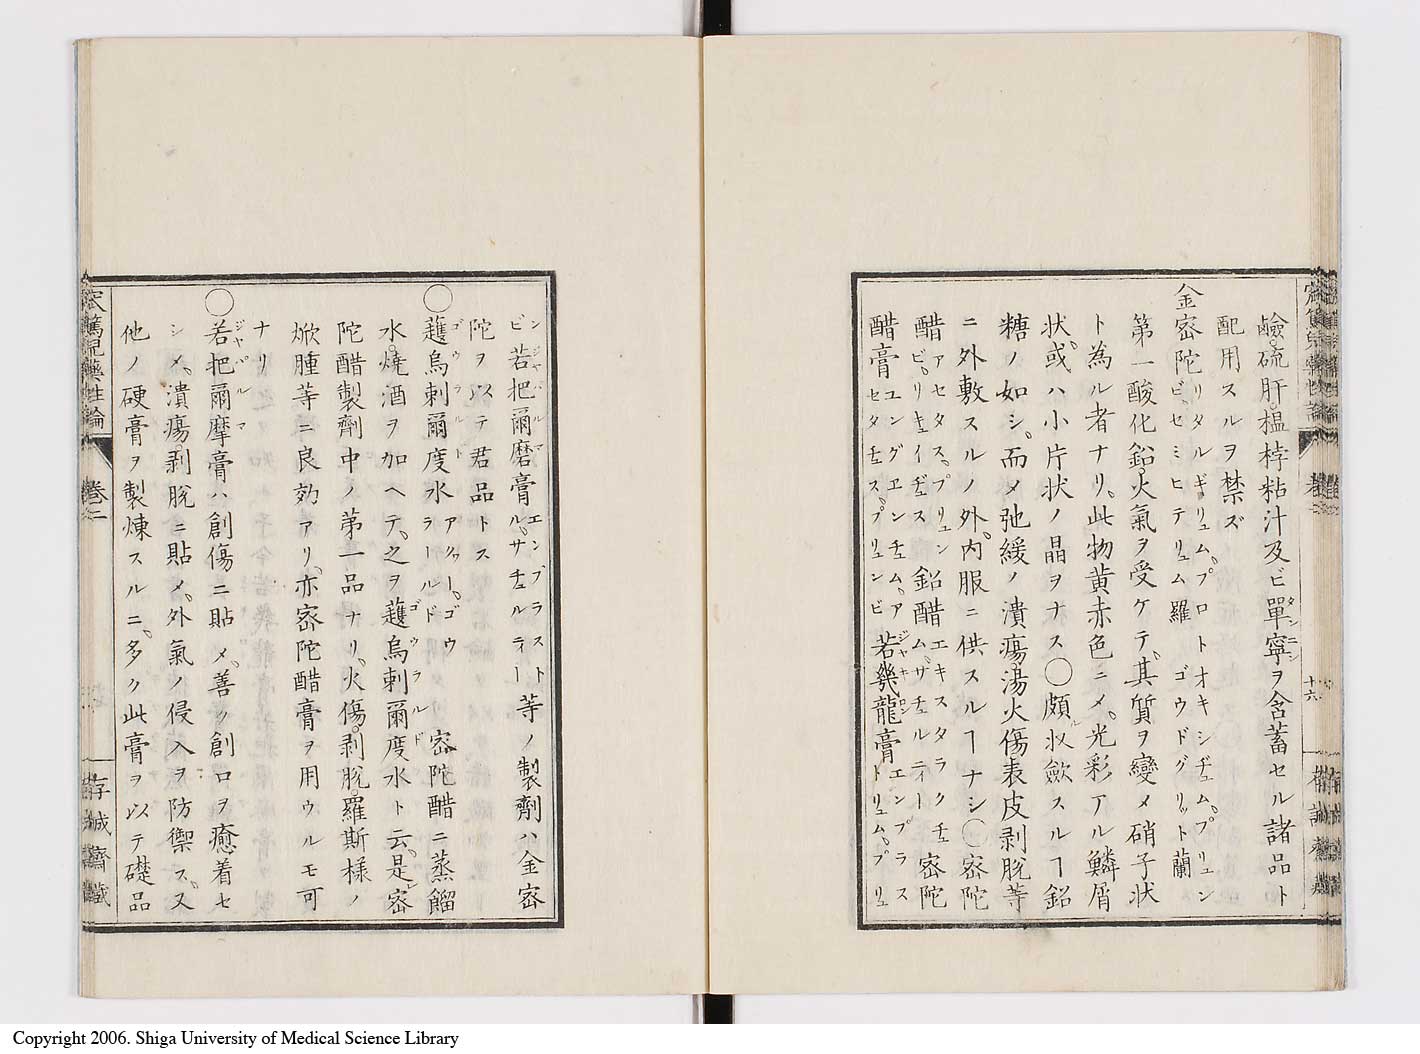 鹼硫肝榲桲粘汁及ビ單寧ヲ含蓄セル諸品ト
タンニン
配用スルヲ禁ズ
金密陀 リタルギリュム、プロトオキシヂュム、プリュン
ビ、セミヒテリュム羅 ゴウドグリット蘭
第一酸化鉛火氣ヲ受ケテ其質ヲ變メ硝子状
ト為ル者ナリ此物黄赤色ニメ光彩アル鱗屑
状或ハ小片状ノ晶ヲナス〇頗ル収斂スルヿ鉛
糖ノ如シ而メ弛緩ノ潰瘍湯火傷表皮剥脱等
ニ外敷スルノ外内服ニ供スルヿナシ〇密陀
醋 アセタス、プリュン
ビ、リキイヂュス 鉛醋 エキスタラクチュ
ム、サチュルティー 密陀
醋膏 ユングエンチュム、ア
セタチュス、プリュンビ 若幾龍膏 エンプラス
トリュム、プリュ
ジャキロン
十六
ンビ 若把爾磨膏 エンプラスト
ル、サチュルティー 等ノ製劑ハ金密
ジャパルマ
陀ヲ以テ君品トス
〇護烏剌爾度水 アクワー、ゴウ
ラールド 密陀醋ニ蒸餾
ゴウラルド
水燒酒ヲ加ヘテ之ヲ護烏剌爾度水ト云是密
ゴウラルド
陀醋製劑中ノ第一品ナリ火傷剥脱羅斯様ノ
焮腫等ニ良効アリ亦密陀醋膏ヲ用ウルモ可
ナリ
〇若把爾摩膏ハ創傷ニ貼メ善ク創口ヲ癒着セ
ジャパルマ
シメ潰瘍剥脱ニ貼メ外氣ノ侵入ヲ防禦ス又
他ノ硬膏ヲ製煉スルニ多ク此膏ヲ以テ礎品
卷二
存誠齋藏
Copyright 2006. Shiga University of Medical Science Library